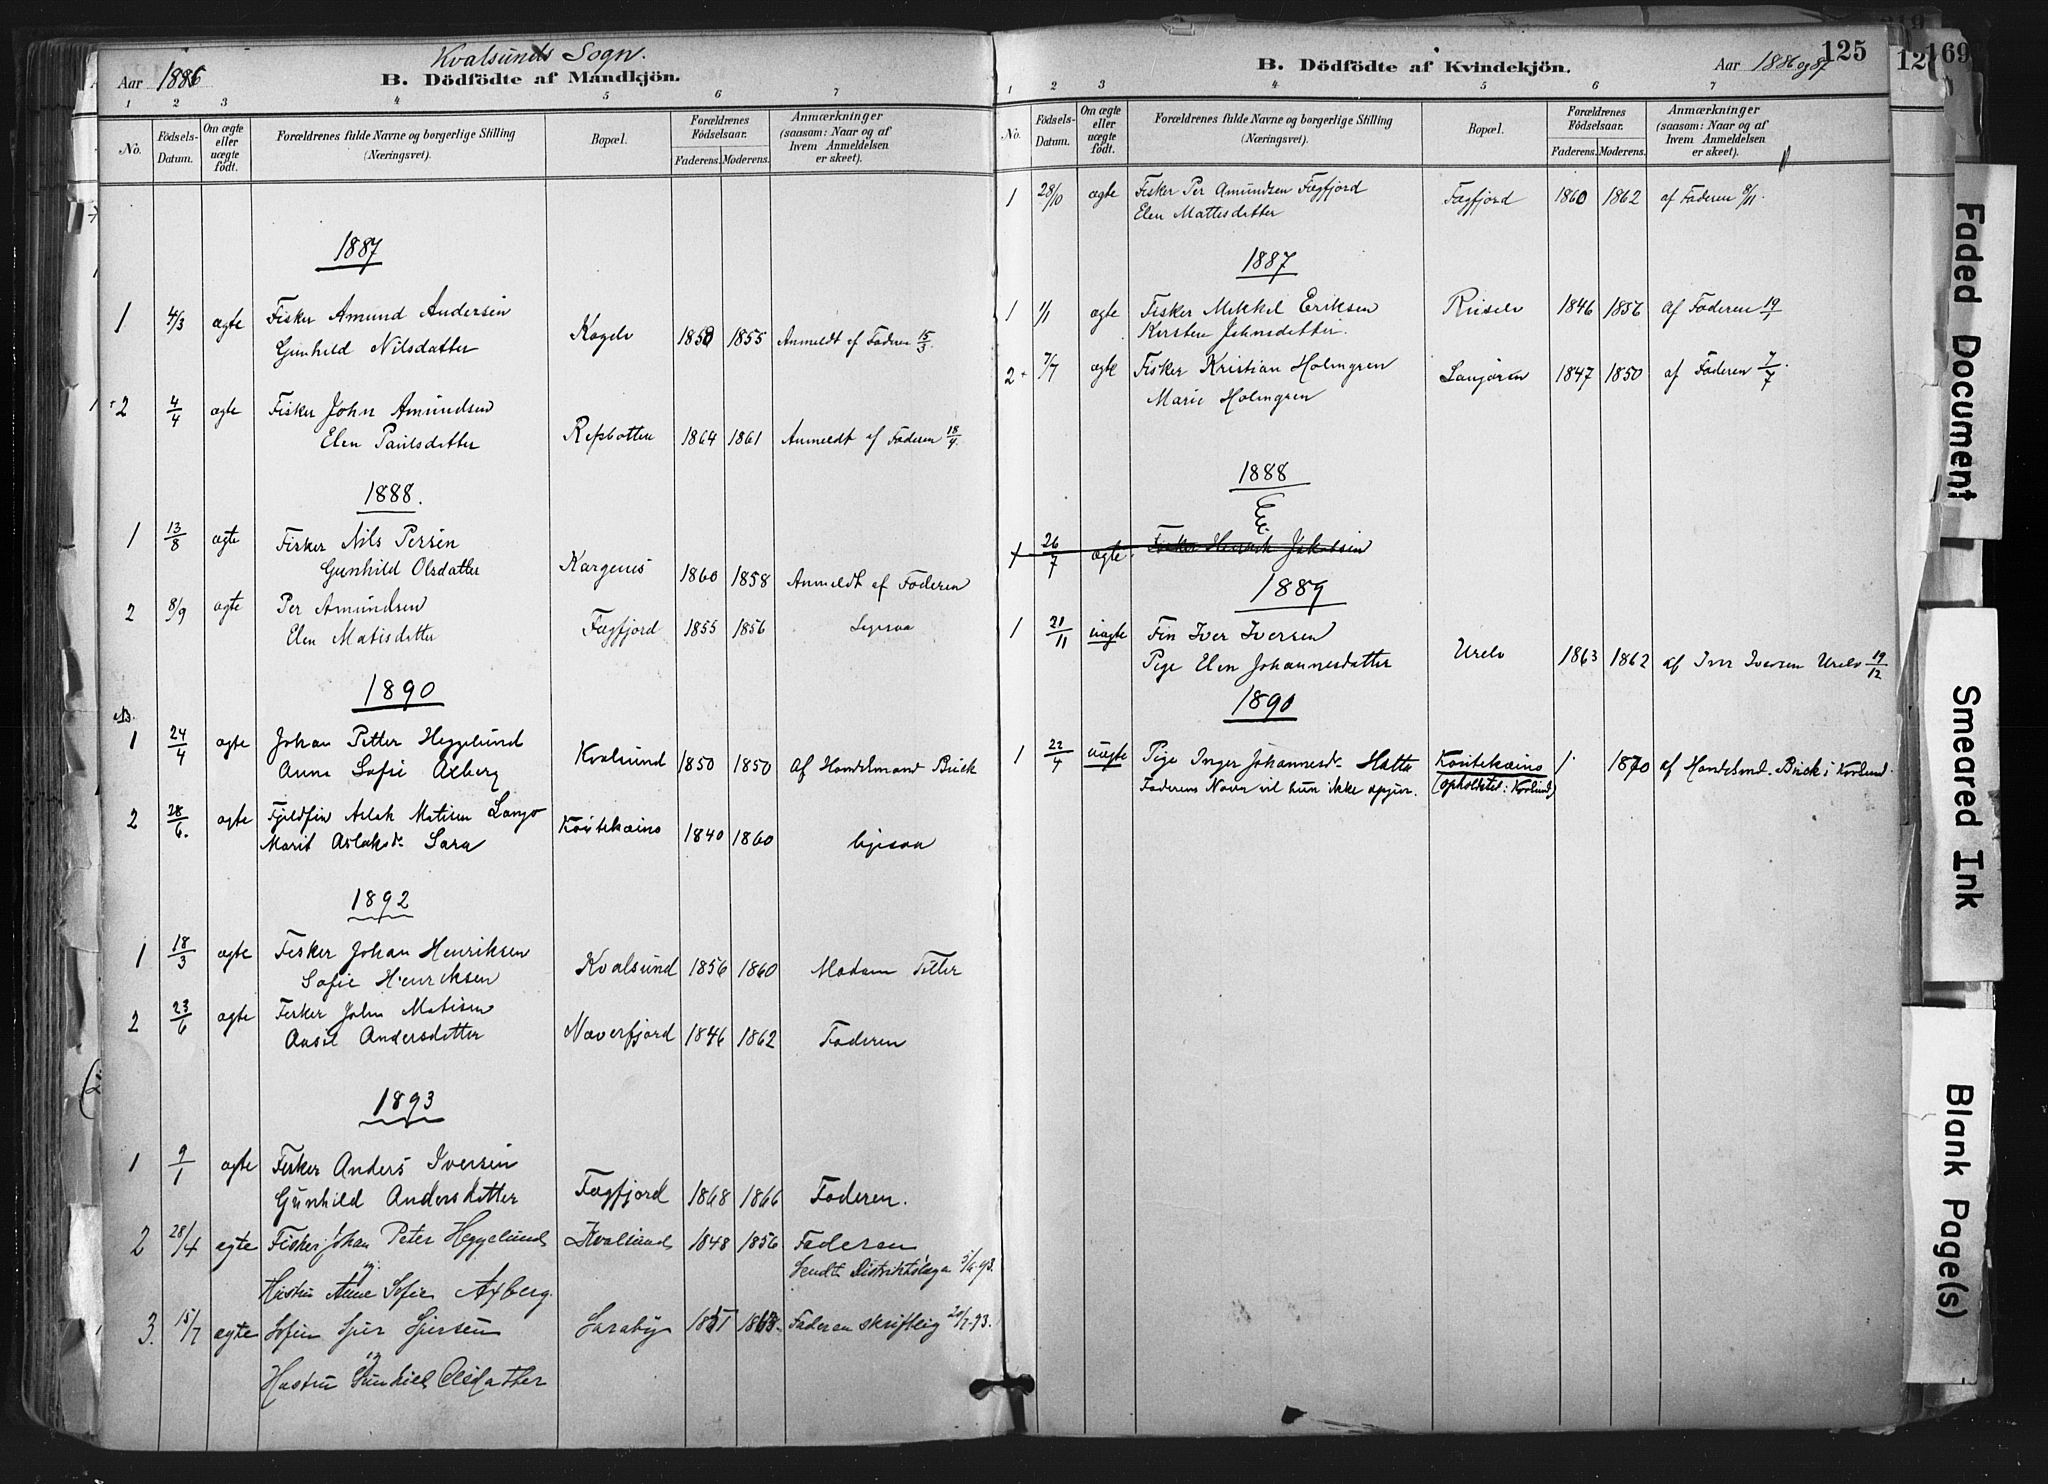 Kvalsunds Sogn.
Aar 1886
B. Dödfödte af Mandkjön.
1 2 3 4 5 6 7
No.
Födsels-Datum.
Om ægte eller uægte födt.
Forældrenes fulde Navne og borgerlige Stilling (Næringsvei).
Bopæl.
Forældrenes Födselsaar.
Faderens. Moderens.
Anmærkninger (saasom: Naar og af hvem Anmeldelsen er skeet).
1887
1 4/3 ægte Fisker Amund Andersen
Gunhild Nilsdatter 1855 Anmeldt af Faderen 15/3.
2 4/4 ægte Fisker John Amundsen
Elen Paulsdatter Repbotten 1864 1861 Anmeldt af Faderen 18/4.
1888.
1 13/8 ægte Fisker Nils Persen
Gunhild Olsdatter Kargenes 1860 1858 Anmeldt af Faderen
2 8/9 ægte Per Amundsen
Elen Matisdatter Fægfjord 1855 1856 Ligesaa
1890
No.
1 24/4 ægte Johan Petter Heggelund
Anna Sofie Axberg Kvalsund 1850 1850 af Handelsmand Buck
2 28/6. ægte Fjeldfin Aslak Matisen Lango
Marit Aslaksdr. Sara Koutokæino 1840 1860 ligesaa
1892
1 18/3 ægte Fisker Johan Henriksen
Sofie Henriksen Kvalsund 1856 1860 Madam
2 23/6 ægte Fisker John Matisen
Andersdatter Næverfjord 1846 1862 Faderen
1893
1 9/1 ægte Fisker Anders Iversen
Gunhild Andersdatter Fægfjord 1868 1866 Faderen.
2 28/4 ægte Fisker Johan Peter Heggelund Kvalsund 1848 1856 Faderen
Sendt Distriktslæge
Hustru Anne Sofie Axberg.
3. 15/7 ægte Hustru Olsdatter Saraby Faderen skriftlig 20/7-93.
B. Dödfödte af Kvindekjön.
Aar 1886 og 87
125
12
169
1 2 3 4 5 6 7
No.
Födsels-Datum.
Om ægte eller uægte födt.
Forældrenes fulde Navne og borgerlige Stilling (Næringsvei).
Bopæl.
Forældrenes Födselsaar.
Faderens. Moderens.
Anmærkninger (saasom: Naar og af hvem Anmeldelsen er skeet).
1 28/10 ægte Fisker Per Amundsen Fægfjord
Elen Mattisdatter Fægfjord 1860 1862 af Faderen
1887
1 1/1 ægte Fisker Mikkel Eriksen
Kirsten Johnsdatter. 1846 1856 af Faderen 19/1
2 7/7 ægte Fisker Kristian Holmgren
Marie Holmgren 1847 1850 af Faderen 7/7.
1888
1 26/7 ægte. Fisker Henrik Jakobsen
1889
1 21/11 uægte Fin Iver Iversen
Pige Elen Johannesdatter Urelv 1863 1862 af Iver Iversen Urelv 19/12
1890
1 22/4 uægte Pige Inger Johannesdr. Hatta Koutokæino 1870 af Handelsmd. Buck i Kvalsund
Faderens Navn vil hun ikke opgive. (opholdsted: Kvalsund)
Faded Document
Smeared Ink
Blank Page(s)